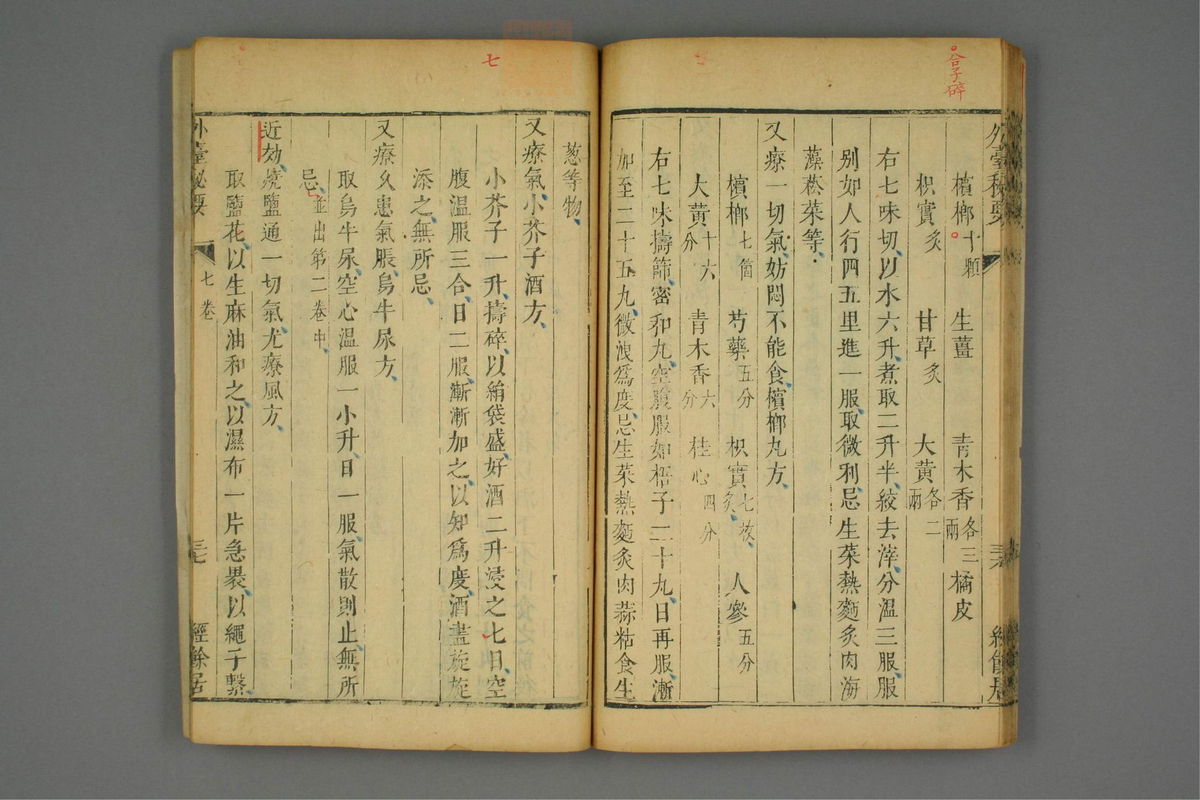 合子碎
外臺秘要
檳榔十顆 生薑 青木香各三兩 橘皮
枳實炙 甘草炙 大黃各二兩
右七味切以水六升煮取二升半絞去滓分溫三服服
別如人行四五里進一服取微利忌生菜熱麵炙肉海
藻菘菜等
又療一切氣妨悶不能食檳榔丸方
檳榔七箇 芍藥五分 枳實七枚炙 人參五分
大黃十六分 青木香六分 桂心四分
右七味擣篩密和丸空腹服如梧子二十九日再服漸
加至二十五丸微洩爲度忌生菜熱麵炙肉蒜粘食生
七
葱等物
又療氣小芥子酒方
小芥子一升擣碎以絹袋盛好酒二升浸之七日空
腹溫服三合日二服漸漸加之以知爲度酒盡旋旋
添之無所忌
又療久患氣脹烏牛尿方
取烏牛尿空心溫服一小升日一服氣散則止無所
忌並出第二卷中
近効燒鹽通一切氣尤療風方
取鹽花以生麻油和之以濕布一片急裹以繩子繫
外臺秘要 七卷 三七 經餘居